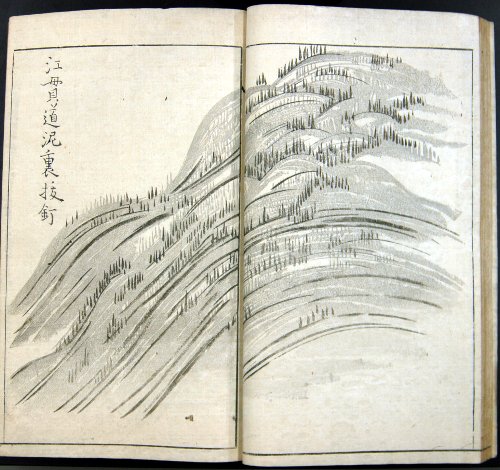 江貫道泥裏拔釘